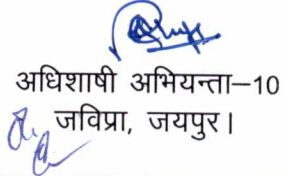 अधिशाषी अभियन्ता–10
जविप्रा, जयपुर।